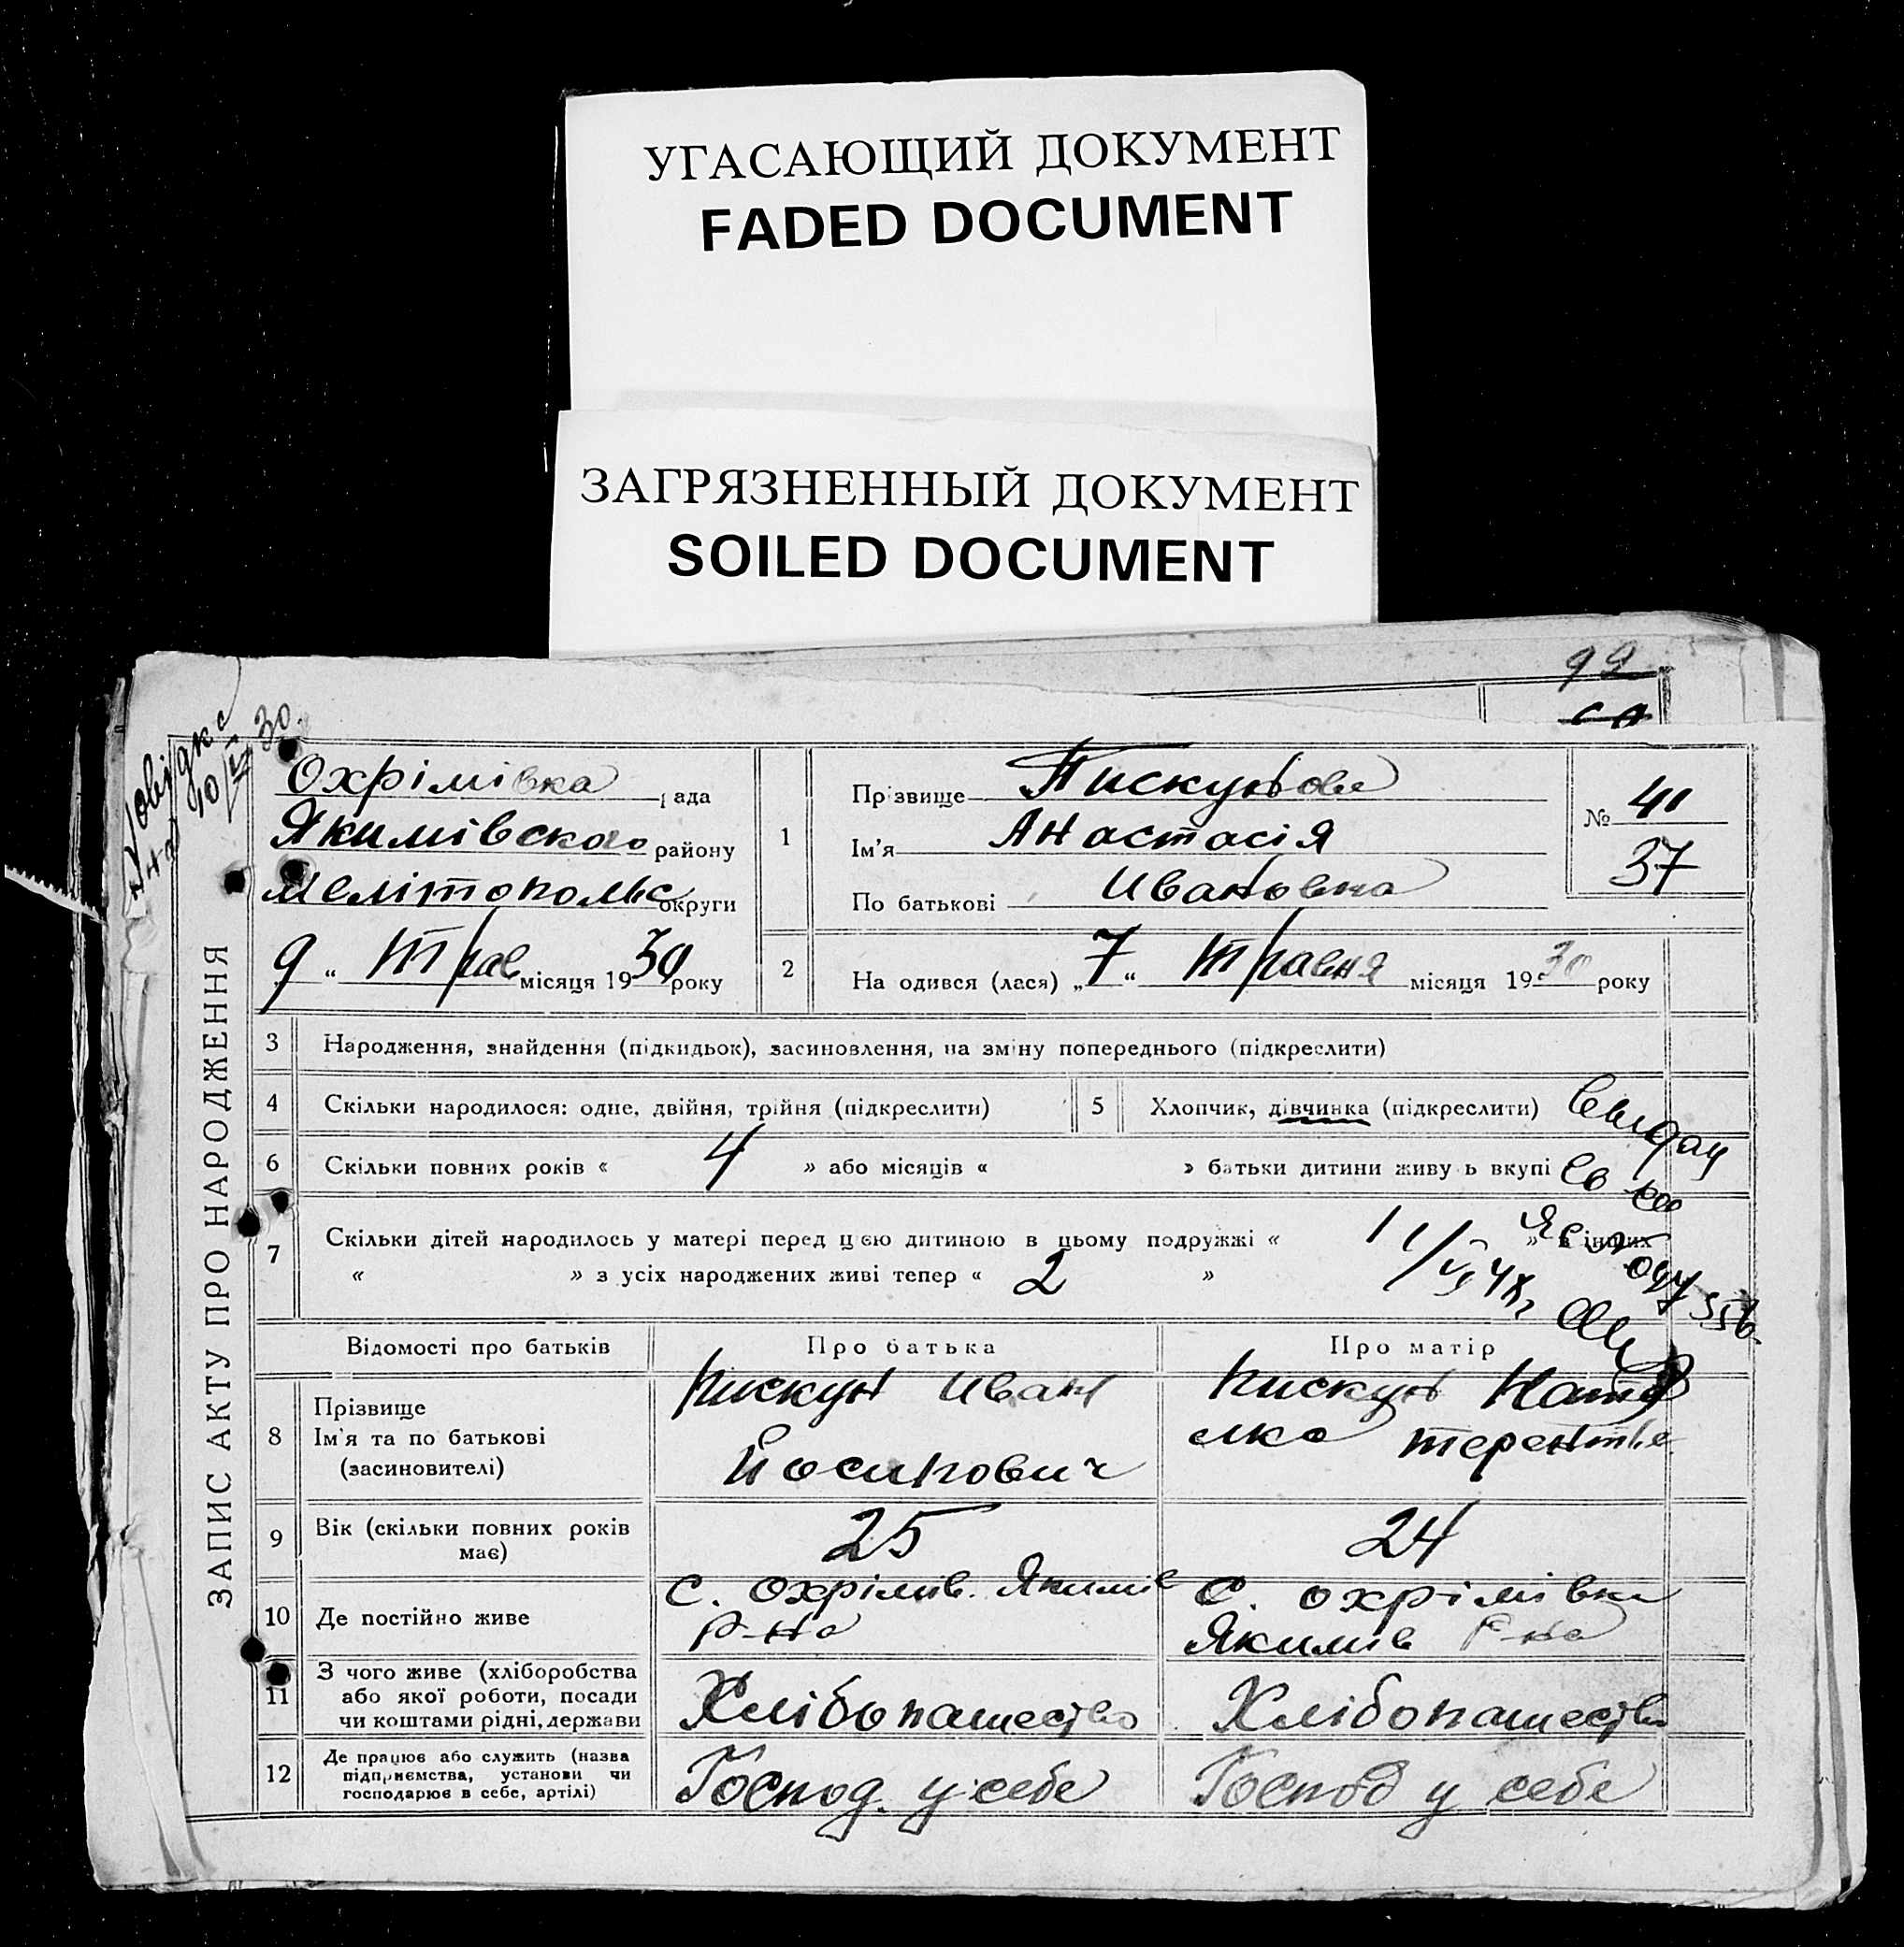 УГАСАЮЩИЙ ДОКУМЕНТ
FADED DOCUMENT
ЗАГРЯЗНЕННЫЙ ДОКУМЕНТ
SOILED DOCUMENT
92
ЗАПИС АКТУ ПРО НАРОДЖЕННЯ
30.
Охрімівка рада
Якимівського району
Мелітопольс округи
9 " Трав місяця 1930 року
1
Прізвище Пискунова
Ім'я Анастасія
По батькові Ивановна
№ 41
37
2
На одився (лася) „7" Травня місяця 1930 року
3 Народження, знайдення (підкидьок), засиновлення, на зміну попереднього (підкреслити)
4 Скільки народилося: одне, двійня, трійня (підкреслити)
5 Хлопчик, дівчинка (підкреслити)
6 Скільки повних років « 4 » або місяців « » батьки дитини живуть вкупі
7 Скільки дітей народилось у матері перед цією дитиною в цьому подружжі « » в інших
« » з усіх народжених живі тепер « 2 »
Відомості про батьків Про батька Про матір
8 Прізвище
Ім'я та по батькові
(засиновителі)
Пискун Иван
Йосипович
Пискун Ната
лка Терентье
9 Вік (скільки повних років має) 25 24
10 Де постійно живе
С. Охрімів. Якимів
Р-на
С. Охрімівка
Якимів Р-на
11 З чого живе (хліборобства
або якої роботи, посади
чи коштами рідні, держави
Хлібопашество Хлібопашество
12 Де працює або служить (назва
підприємства, установи чи
господарює в себе, артілі)
Господ. у себе Господ у себе